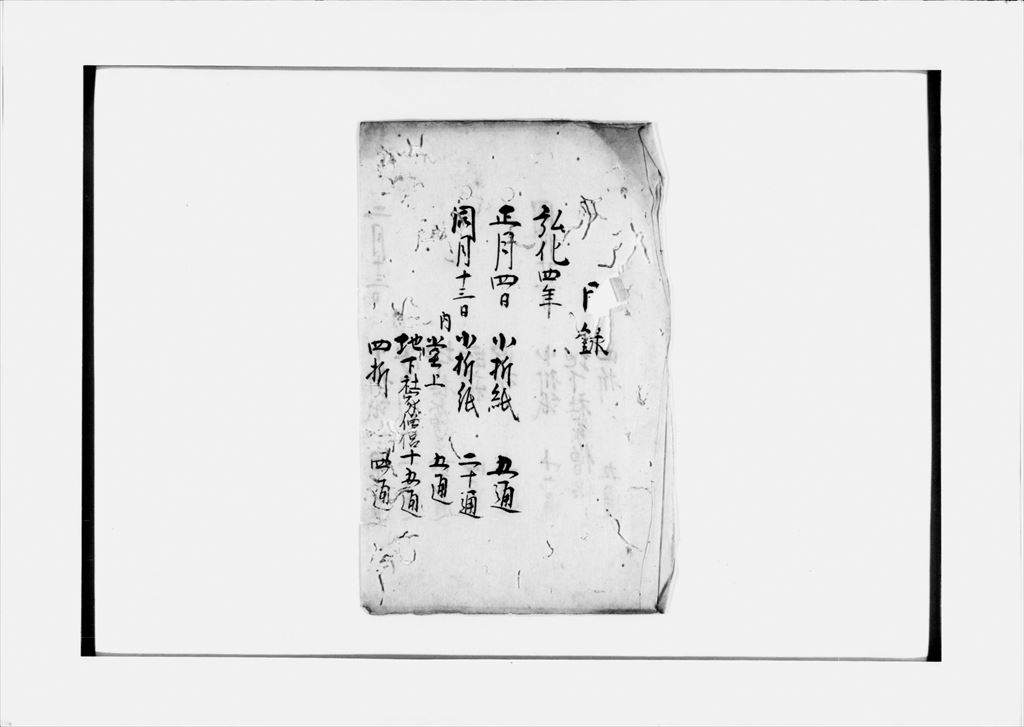 目録
弘化四年
正月四日 小折紙 五通
同月十三日 小折紙 二十通
内 堂上 五通
地下社家僧侶十五通
四折 四通